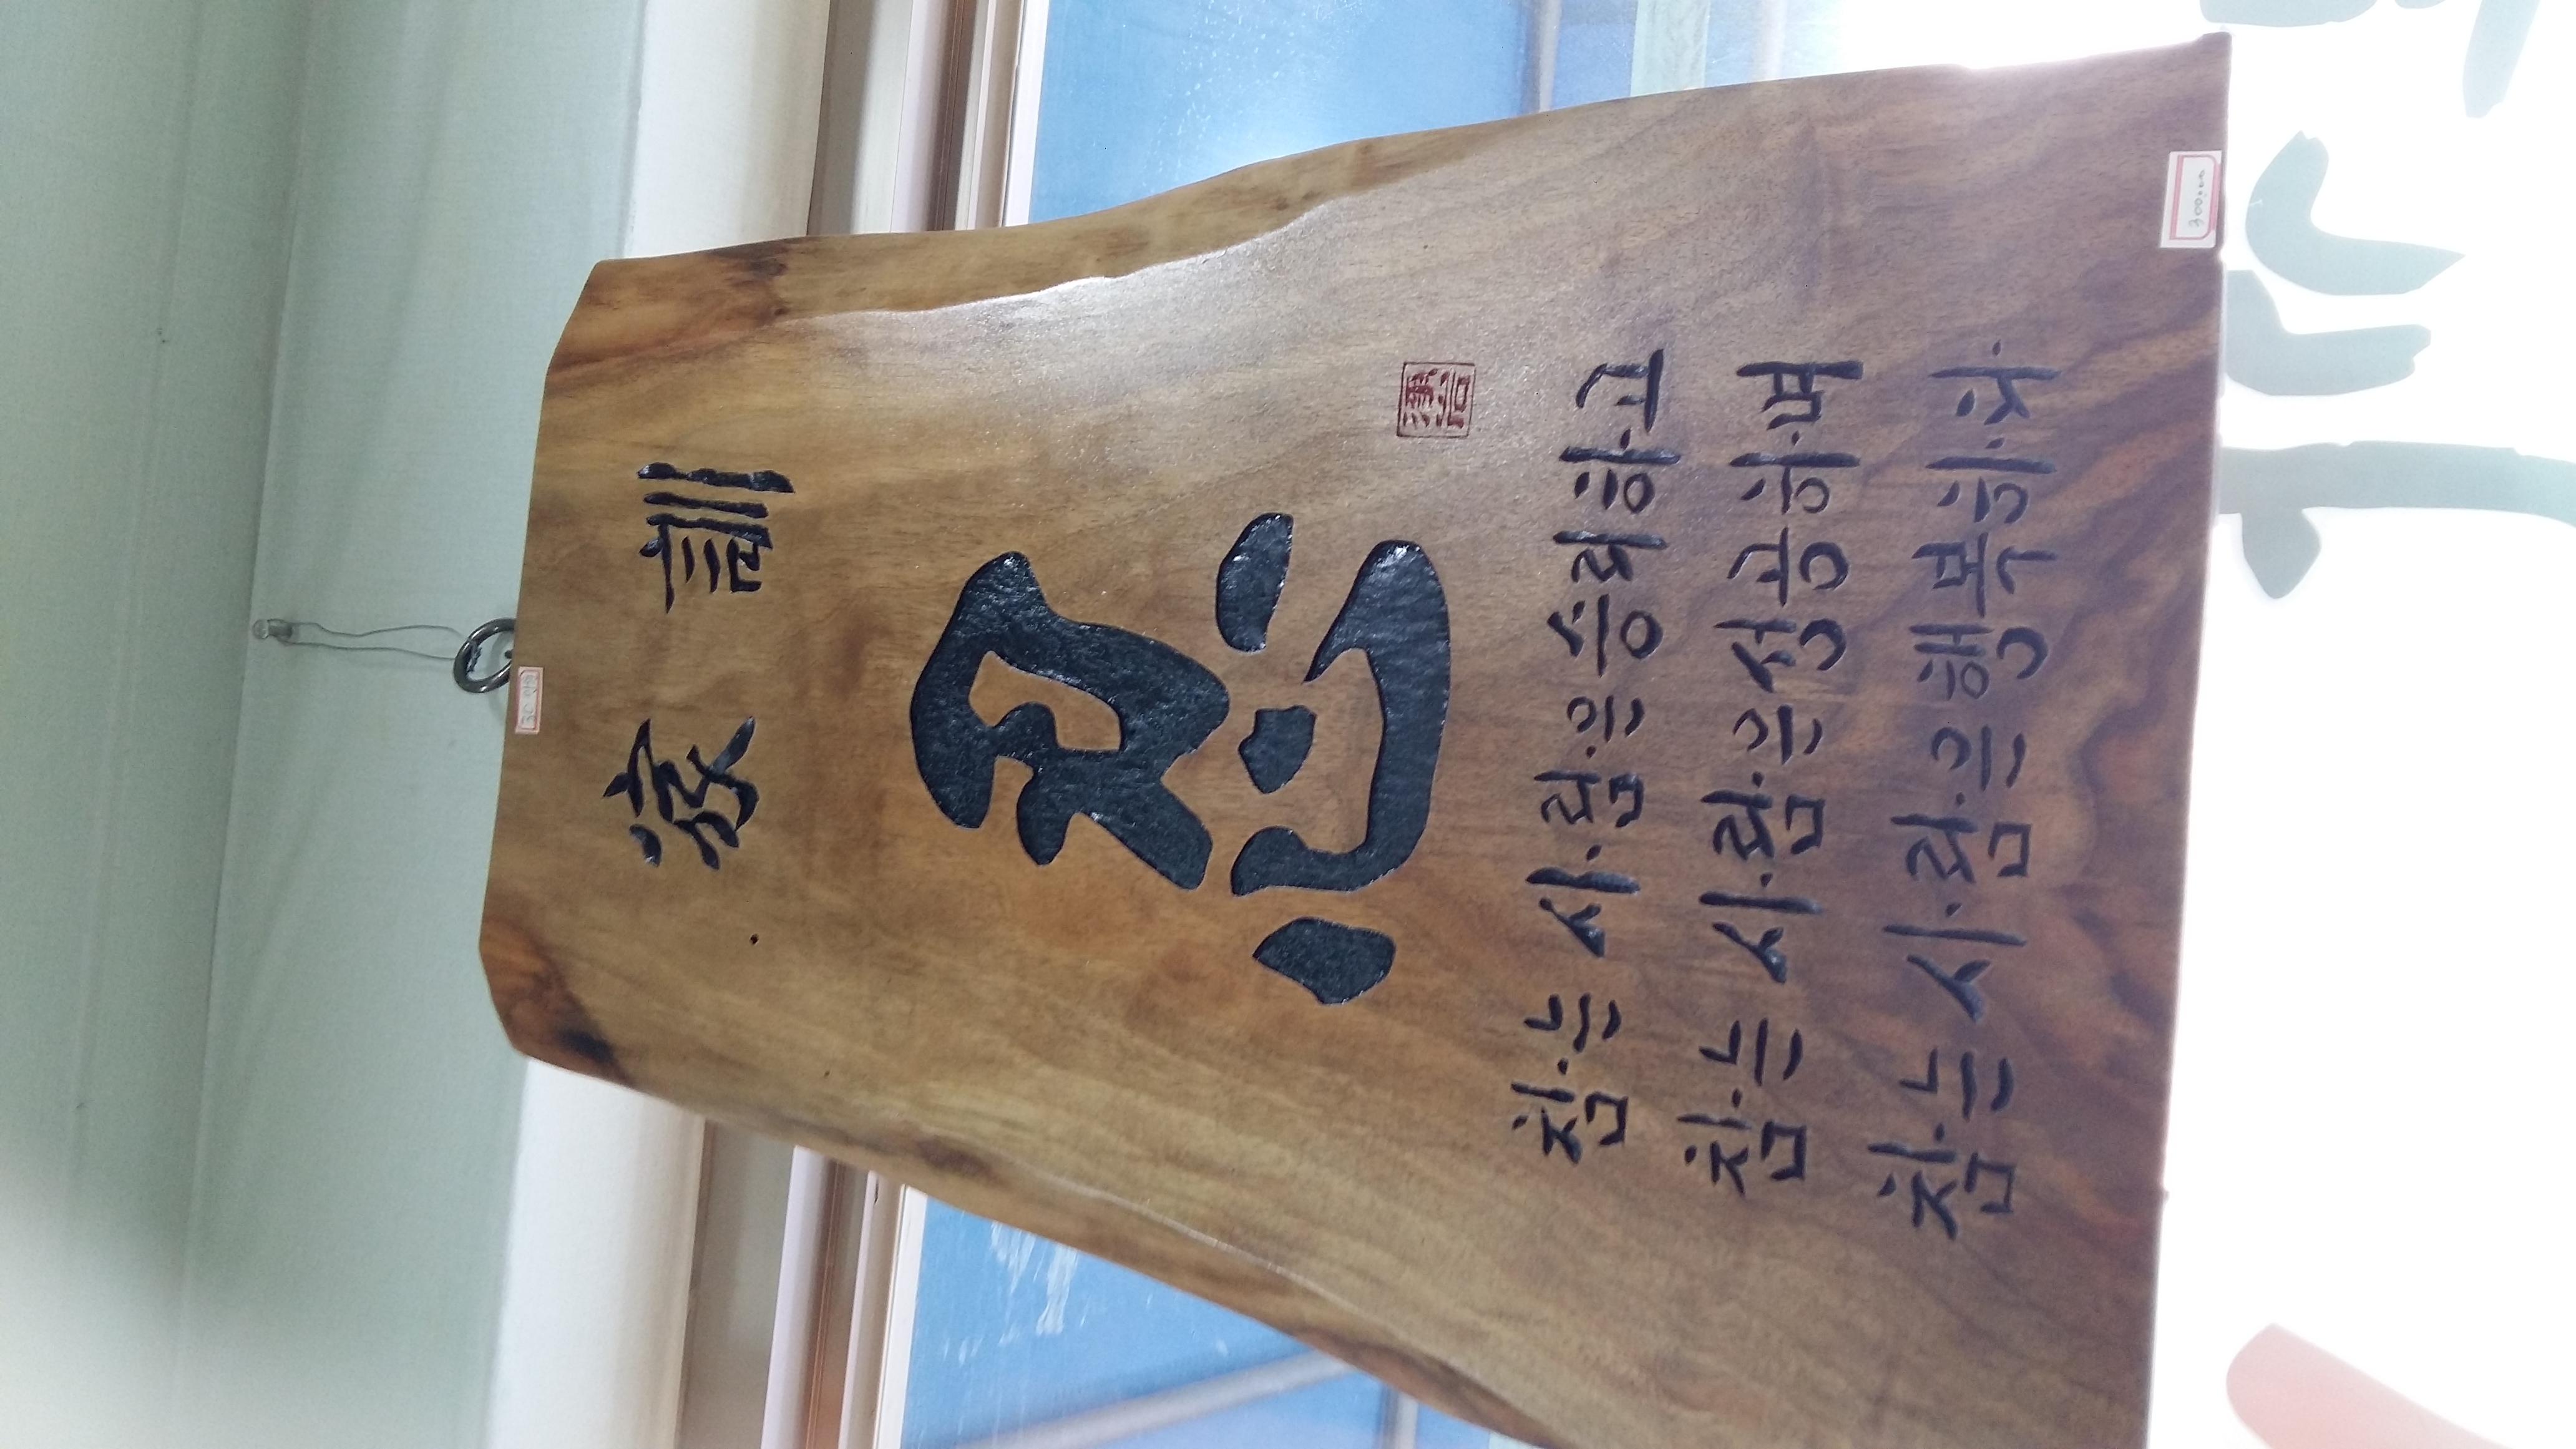 家訓
忍
참는 사람은 승리하고
참는 사람은 성공하며
참는 사람은 행복하자
300,000